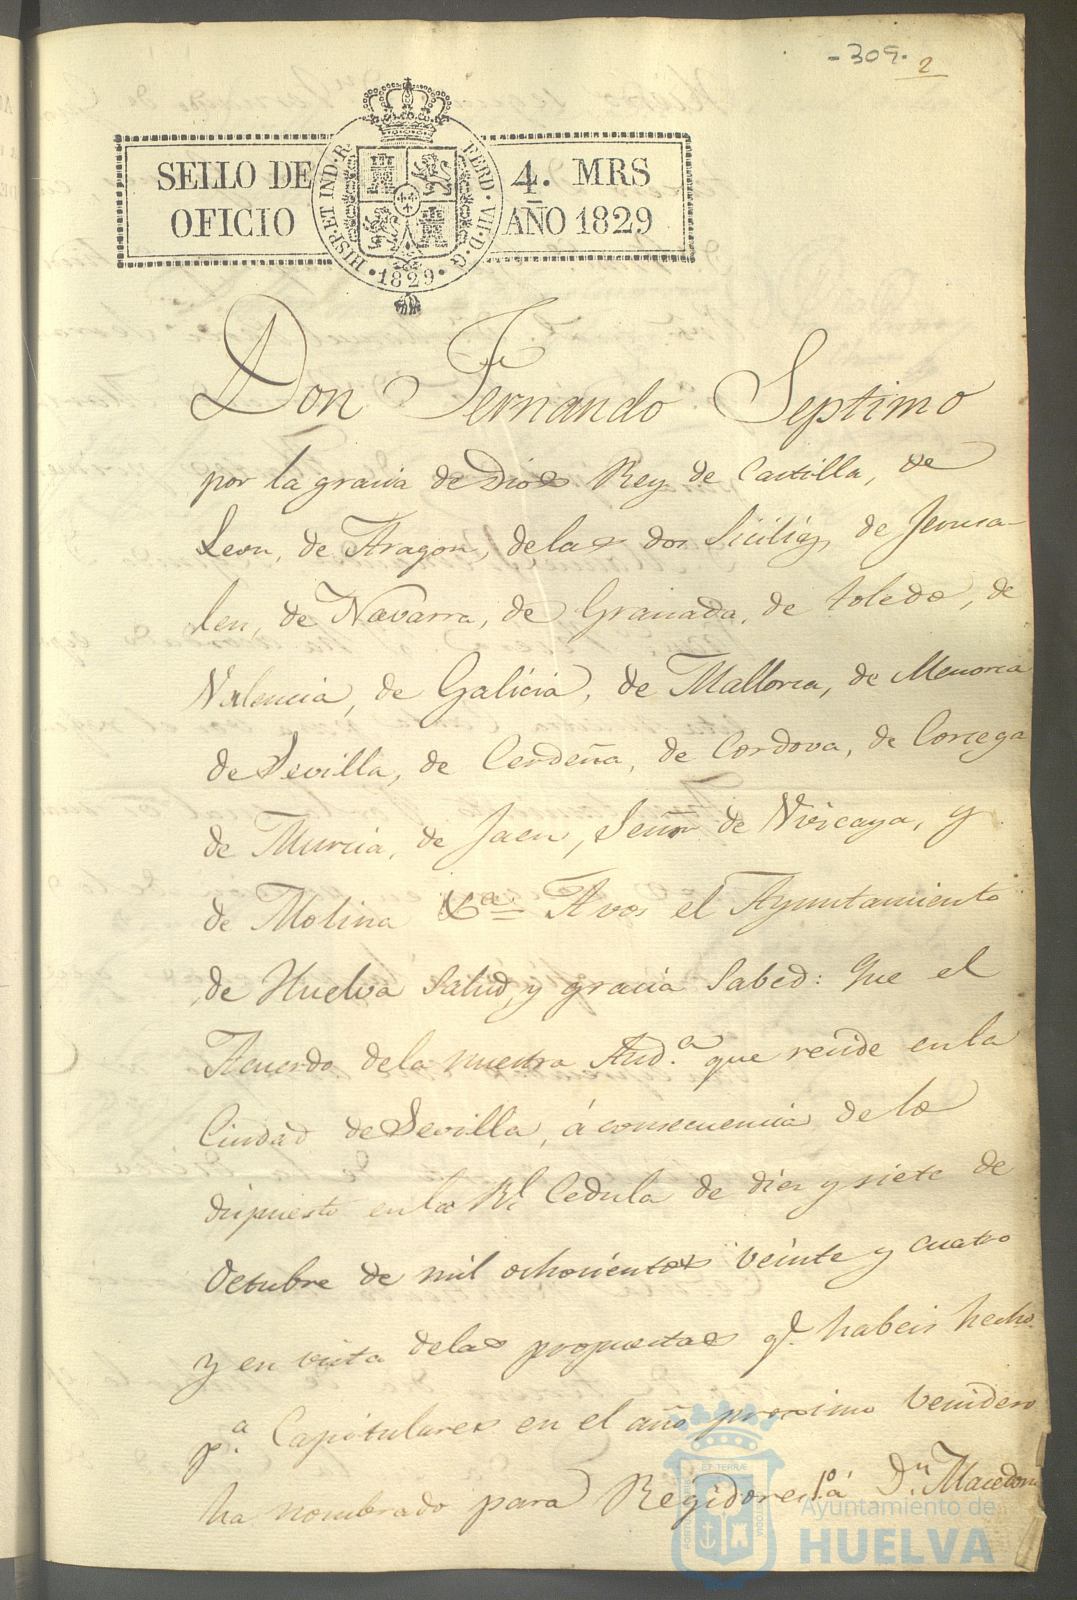 -309.
2
SELLO DE 4. MRS
OFICIO AÑO 1829
HISP. ET IND. R. FERD. VII. D. G. 1829.
Don Fernando Septimo
por la gracia de Dios Rey de Castilla, de
Leon, de Aragon, de las dos Sicilias, de Jerusa-
len, de Navarra, de Granada, de toledo, de
Valencia, de Galicia, de Mallorca, de Menorca
de Sevilla, de Cerdeña, de Cordova, de Corcega
de Murcia, de Jaen, Señor de Vizcaya, y
de Molina &a = A vos el Ayuntamiento
de Huelva salud, y gracia Sabed: Que el
Acuerdo de la nuestra Aud.a que reside en la
Ciudad de Sevilla, á consecuencia de lo
dispuesto en la Rl Cedula de diez y siete de
Octubre de mil ochocientos veinte y cuatro
y en vista de las propuestas q.e habeis hecho
p.a Capitulares en el año proximo venidero
ha nombrado para Regidores 1.o á D.n Macedon
Ayuntamiento de
HUELVA